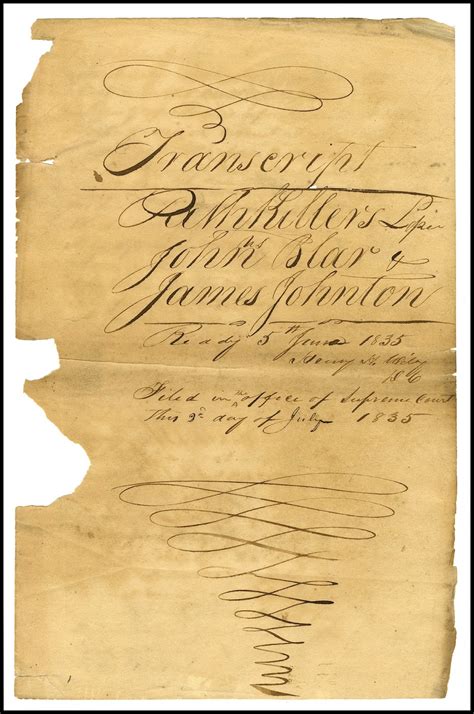 Transcript
Pathkillers
vs
John Blar &
James Johnton
Reddy 5th June 1835
Henry H. Wiley
Filed in the office of Supreme Court
This 9th day of July 1835